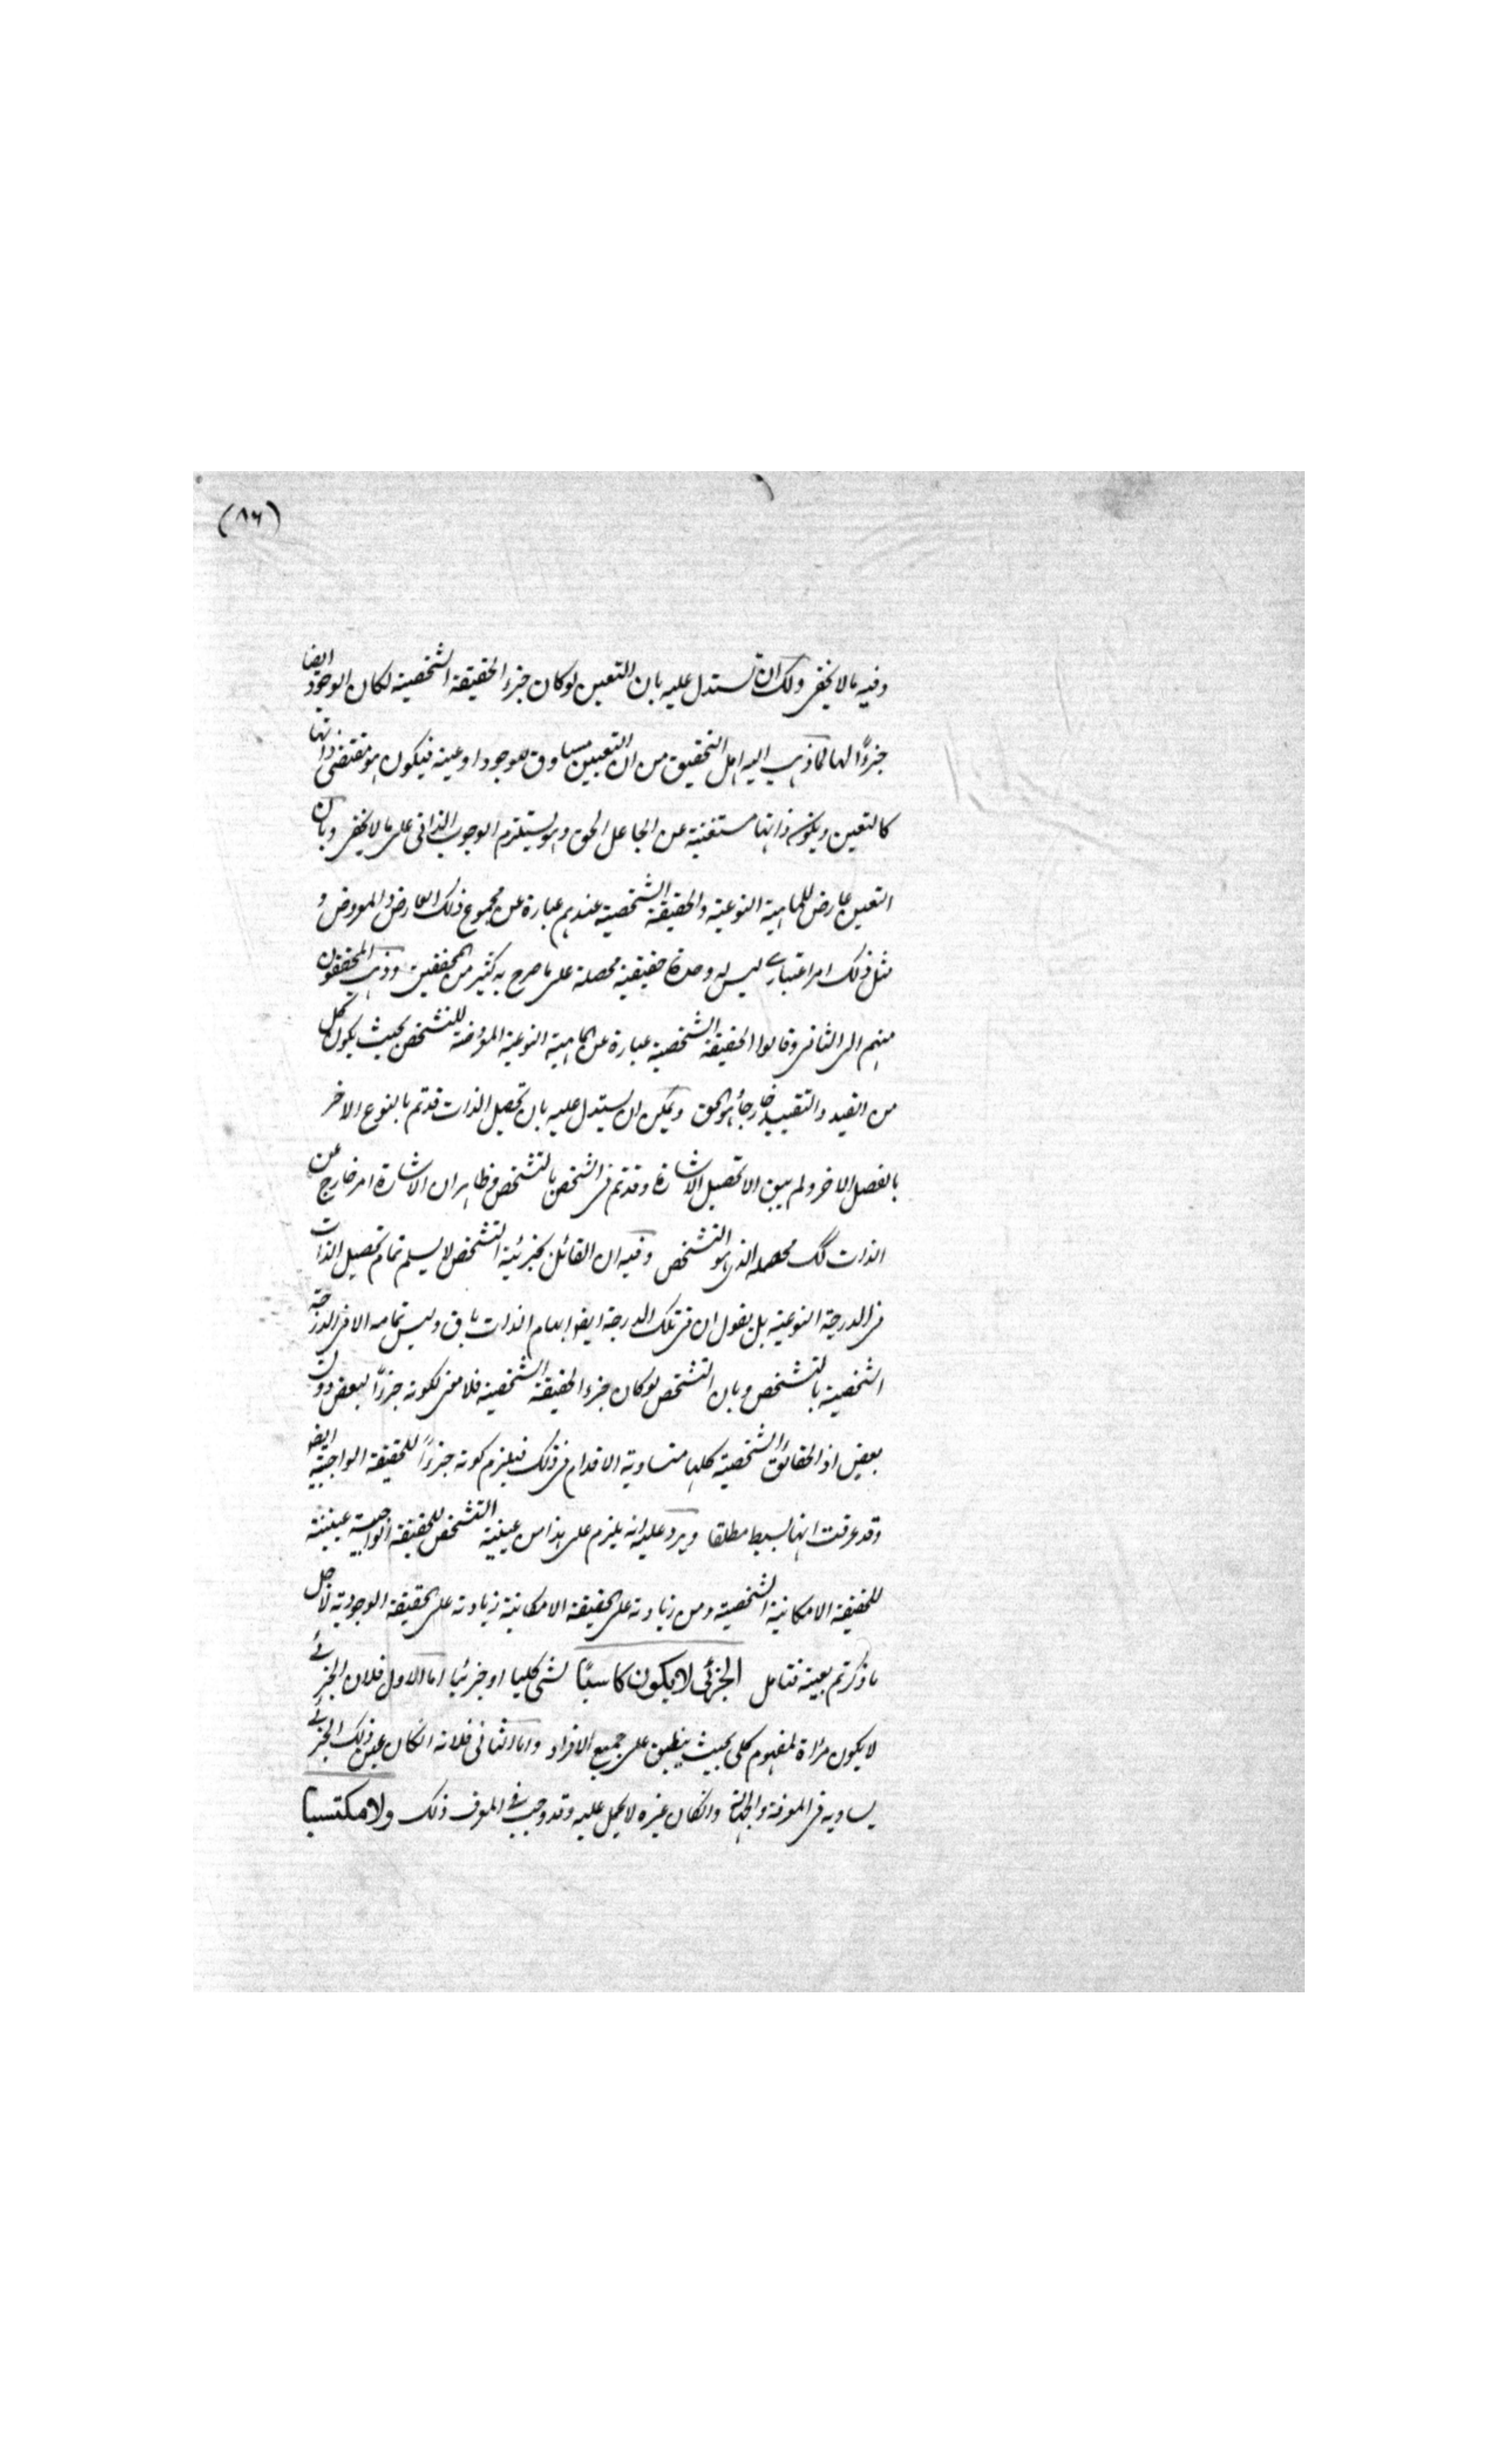 (٨٦)
وفيه ما لا يخفى ولك ان تستدل عليه بان التعين لو كان جزء الحقيقة الشخصية لكان الوجود ايضا
جزءًا لها لما ذهب اليه اهل التحقيق من ان التعين مساوق للوجود او عينه فيكون هو مقتضى ذاتها
كالتعين ويكون ذاتها مستغنية عن الجاعل الحق وهو يستلزم الوجوب الذاتي على ما لا يخفى وبان
التعين عارض للماهية النوعية والحقيقة الشخصية عندهم عبارة عن مجموع ذلك العارض والمعروض و
مثل ذلك امر اعتبارى ليس له وحدة حقيقية محصلة على ما صرح به كثير من المحققين وذهب المحققون
منهم الى الثانى وقالوا الحقيقة الشخصية عبارة عن الماهية النوعية المعروضة للتشخص بحيث يكون كل
من القيد والتقييد خارجاً هو الحق ويمكن ان يستدل عليه بان تحصيل الذات قد تم بالنوع الاخر
بالفصل الاخر ولم يبق الا تحصيل الاشارة وقد تم فى الشخص بالتشخص وظاهر ان الاشارة امر خارج عن
الذات كك محصله الذى هو التشخص وفيه ان القائل بجزئية التشخص لا يسلم تمام تحصيل الذات
فى الدرجة النوعية بل يقول ان فى تلك الدرجة ايضا ابهام الذات باق وليس تمامه الا فى الدرجة
الشخصية بالتشخص وبان التشخص لو كان جزء الحقيقة الشخصية فلا معنى لكونه جزءًا لبعض دون
بعض اذ الحقائق الشخصية كلها متساوية الاقدام فى ذلك فيلزم كونه جزءًا للحقيقة الواجبية ايضا
وقد عرفت انها بسيط مطلقا ويرد عليه انه يلزم على هذا من عينية التشخص للحقيقة الواجبية عينيته
للحقيقة الامكانية الشخصية ومن زيادته على الحقيقة الامكانية زيادته على الحقيقة الوجودية لاجل
ما ذكرتم بعينه فتامل الجزئى لا يكون كاسبًا لشئ كليا او جزئيا اما الاول فلان الجزئى
لا يكون مراة لمفهوم كلى بحيث ينطبق على جميع الافراد واما الثانى فلانه ان كان عين ذلك الجزئى
يساويه فى المعرفة والجهالة وان كان غيره لا يحمل عليه وقد وجب فى المعرف ذلك ولا مكتسبا